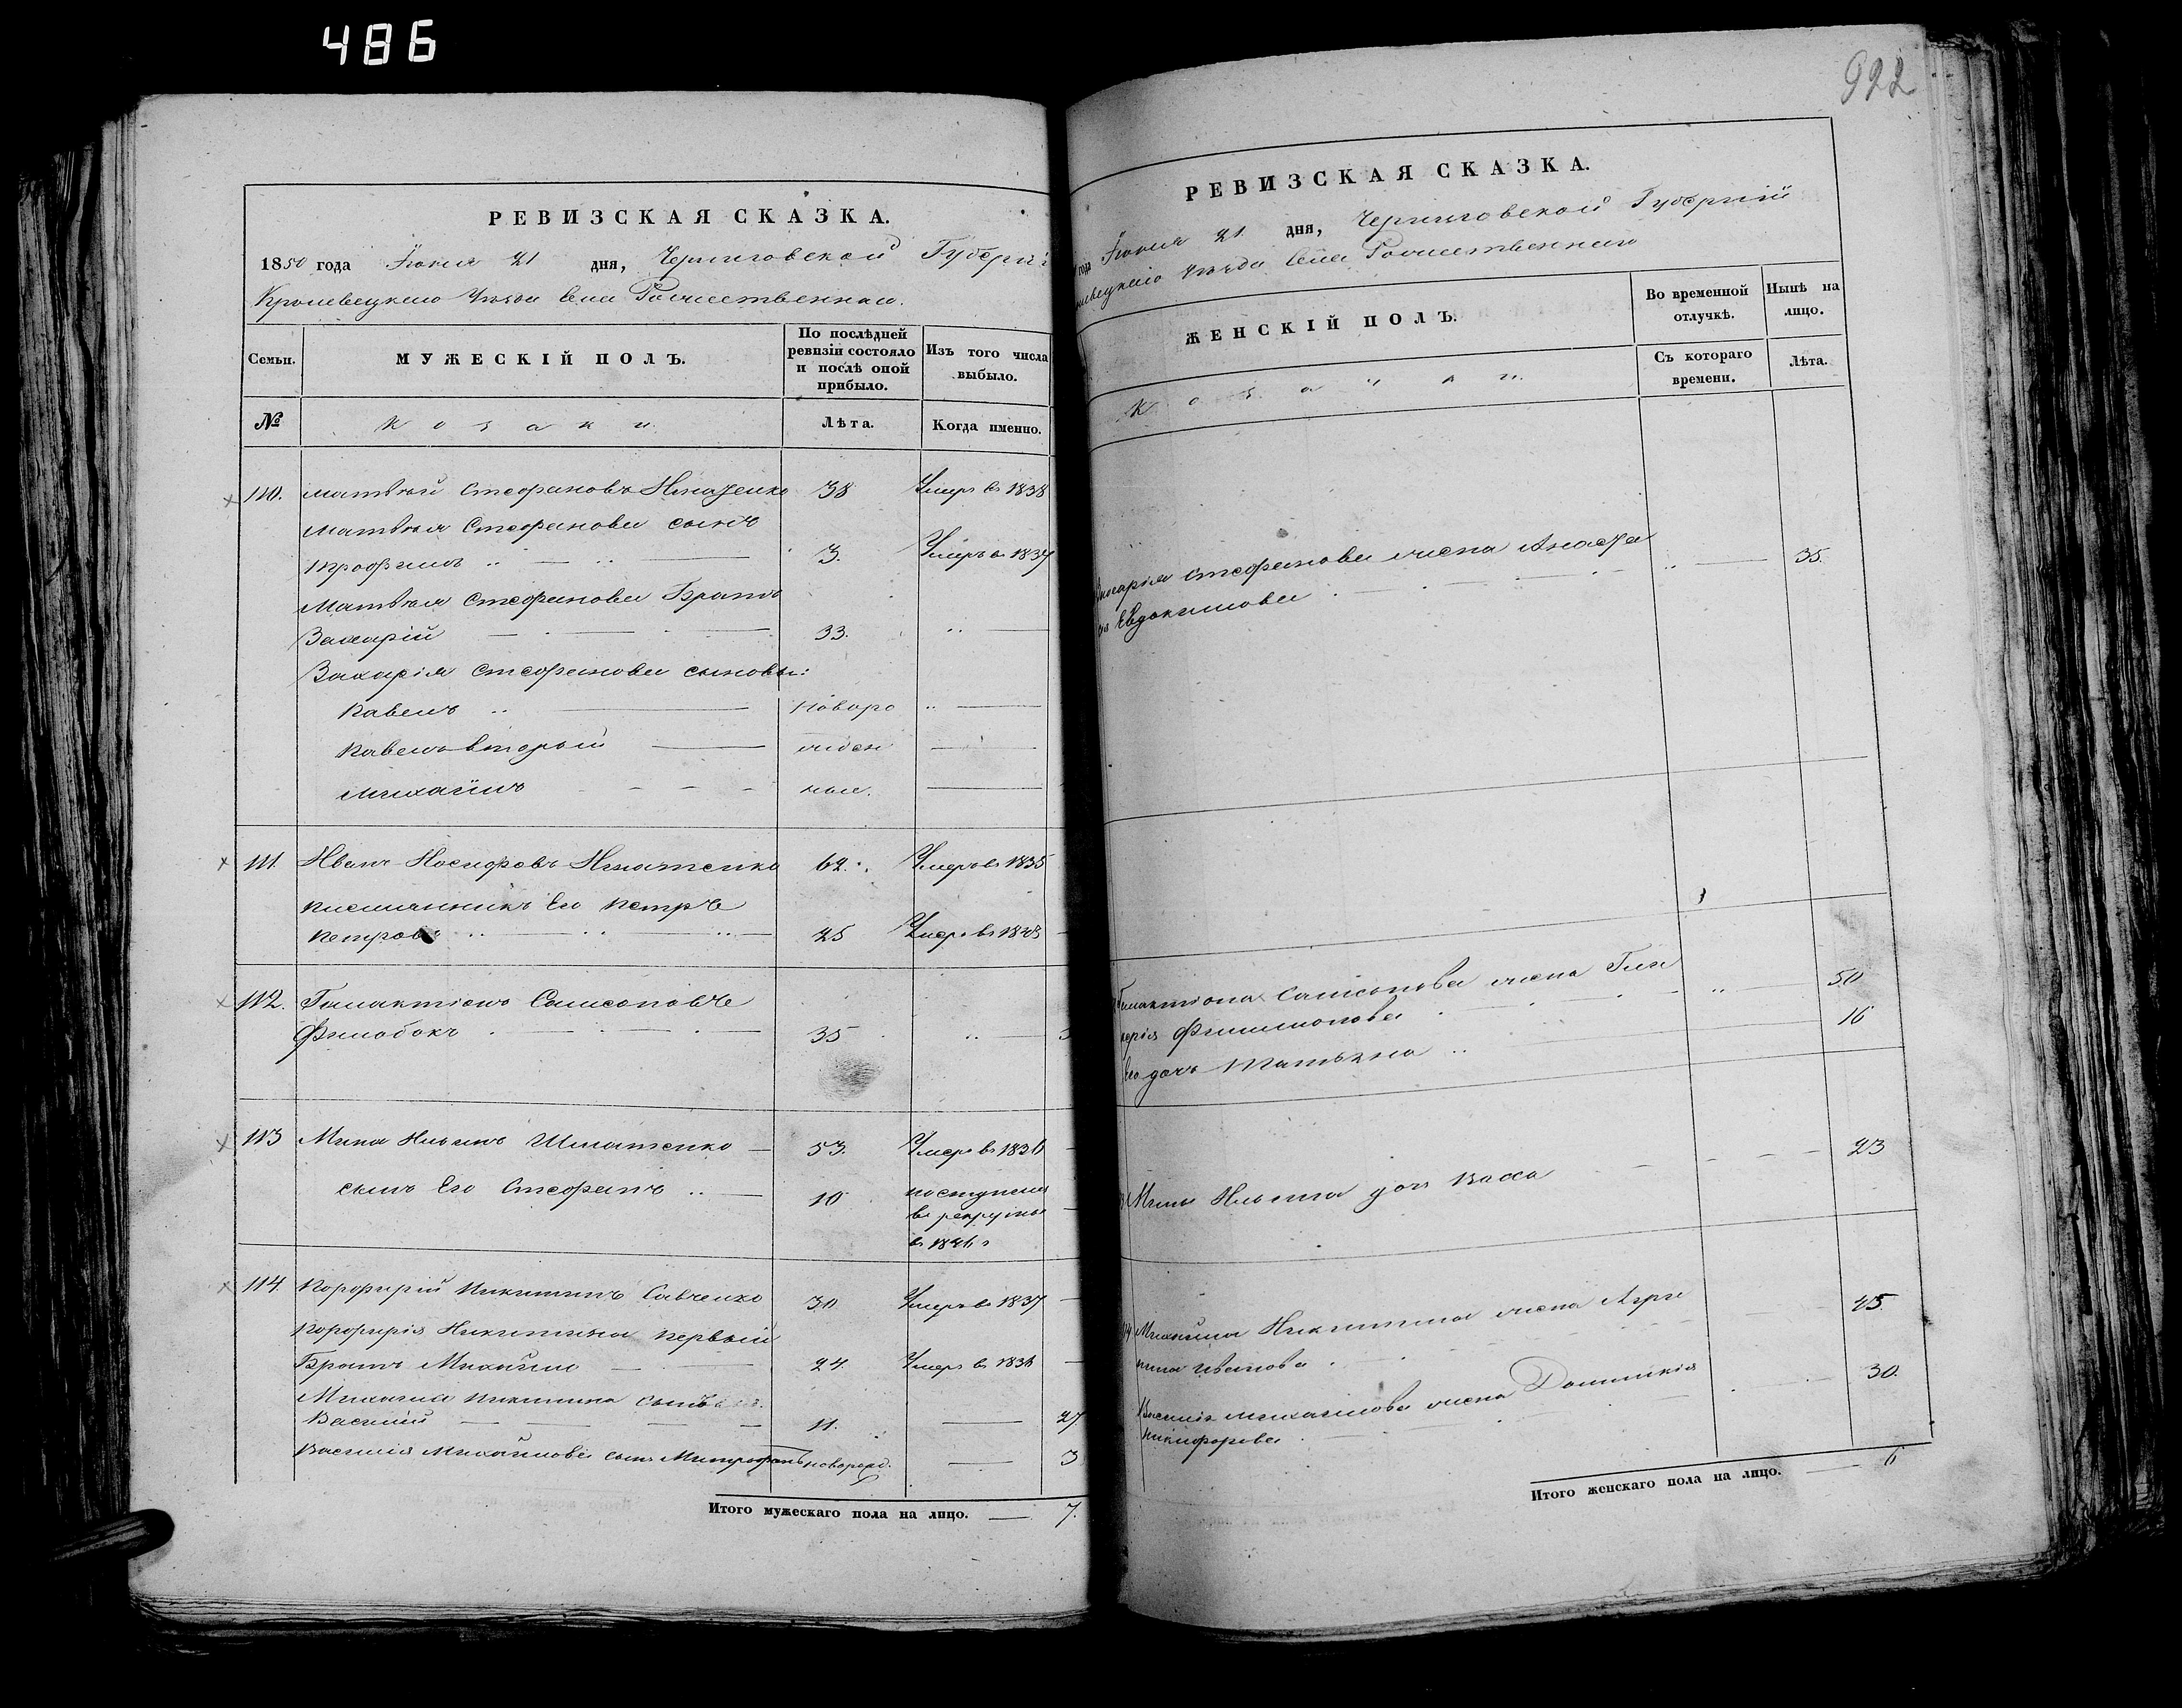 486
РЕВИЗСКАЯ СКАЗКА.
1850 года Іюня 21 дня, Черниговской Губерніи
Кролевецкаго Уѣзда села Рожественнаго.
Семьи.
МУЖЕСКІЙ ПОЛЪ.
По послѣдней ревизіи состояло и послѣ оной прибыло.
Изъ того числа выбыло.
№
Козаки
Лѣта.
Когда именно.
110. Матвѣй Стефановъ 38 Умеръ въ 1838
Матвѣя Стефанова сынъ
Трофимъ 3. Умеръ въ 1837
Матвѣя Стефанова Братъ
Захарій 33.
Захарія Стефанова сыновья:
Павелъ новоро
Павелъ вторый жден
Михаилъ ные.
111. Иванъ Игнатенко 62. Умеръ въ 1835
племянникъ Его Петръ
Петровъ 25 Умеръ въ
112. Галактіонъ Самсоновъ
35
113 Мина Ильинъ Игнатенко 53. Умеръ въ 1836
сынъ Его Стефанъ 10 поступилъ
въ рекруты
въ
114. Порфирій Никитинъ Савченко 30. Умеръ въ 1837
Порфирія Никитина первый
Братъ Михайло 24. Умеръ въ 1836
Михаила Никитина сынъ
Василій 11. 27.
Василія Михайлова сынъ Митрофанъ новорожд. 3
Итого мужескаго пола на лицо. 7.
922
РЕВИЗСКАЯ СКАЗКА.
года Іюня 21 дня, Черниговской Губерніи
Уѣзда села Рожественнаго
ЖЕНСКІЙ ПОЛЪ.
Во временной отлучкѣ.
Нынѣ на лицо.
Съ котораго времени.
Лѣта.
Козачки.
Захарія Стефанова жена Анаста
Евдокимова 35.
Галактіона Самсонова жена Гли
керія Филимонова 50
Его дочь Татьяна 16
Мины Ильина дочь Васса 23
Михайла Никитина жена Агри
пина Иванова 45
Василія Михайлова жена Домникія
Никифорова 30.
Итого женскаго пола на лицо. 6